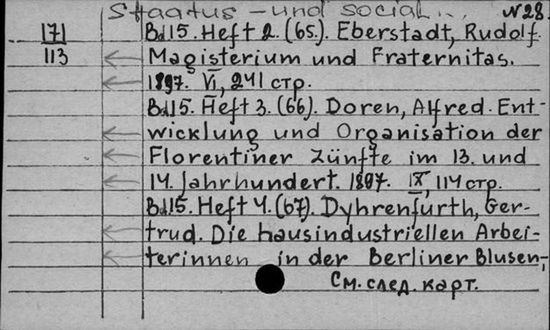 Staatus - und social... N 28.
171
113
Bd15. Heft 2. (65). Eberstadt, Rudolf.
Magisterium und Fraternitas.
1897. VI, 241 стр.
Bd15. Heft 3. (66). Doren, Alfred. Ent-
wicklung und Organisation der
Florentiner Zünfte im 13. und
14. Jahrhundert. 1897. IX, 114 стр.
Bd15. Heft 4. (67). Dyhrenfurth, Ger-
trud. Die hausindustriellen Arbei-
terinnen in der Berliner Blusen,-
См. след. карт.